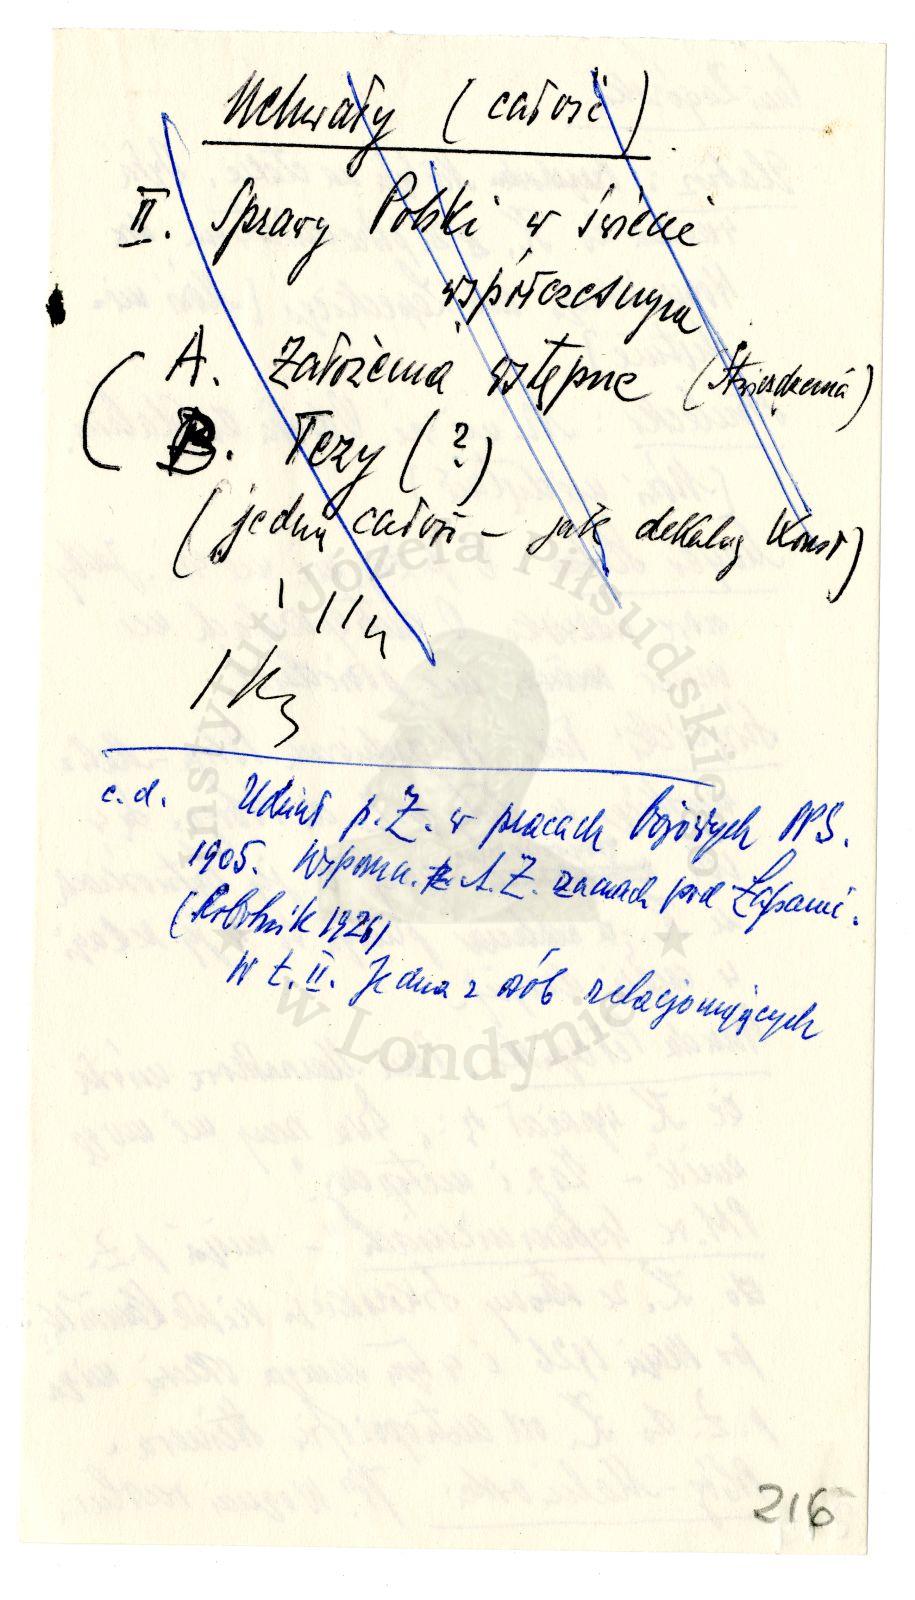 Uchwały (całość)
II. Sprawy Polski w świecie
współczesnym
A. Założenia wstępne (Stwierdzenia)
B. Tezy (?)
(jedną całość – jak dekalog Konst)
c.d. Udział p. Ż. w pracach bojowych PPS.
1905. Wspomn. A. Ż. zamach pod Łapami.
(Robotnik 1926)
W t. II. Jedna z osób relacjonujących
Instytut Józefa Piłsudskiego
w Londynie
216